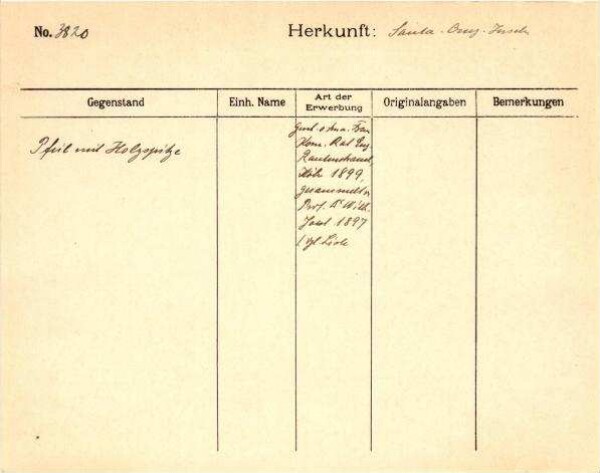 No. 3820
Herkunft: Santa-Cruz-Inseln
Gegenstand
Einh. Name
Art der Erwerbung
Originalangaben
Bemerkungen
Pfeil mit Holzspitze
Kom. Rat Eug.
Rautenstrauch
Köln 1899,
gesammelt v.
Prof. Dr Wilh.
Joest 1897